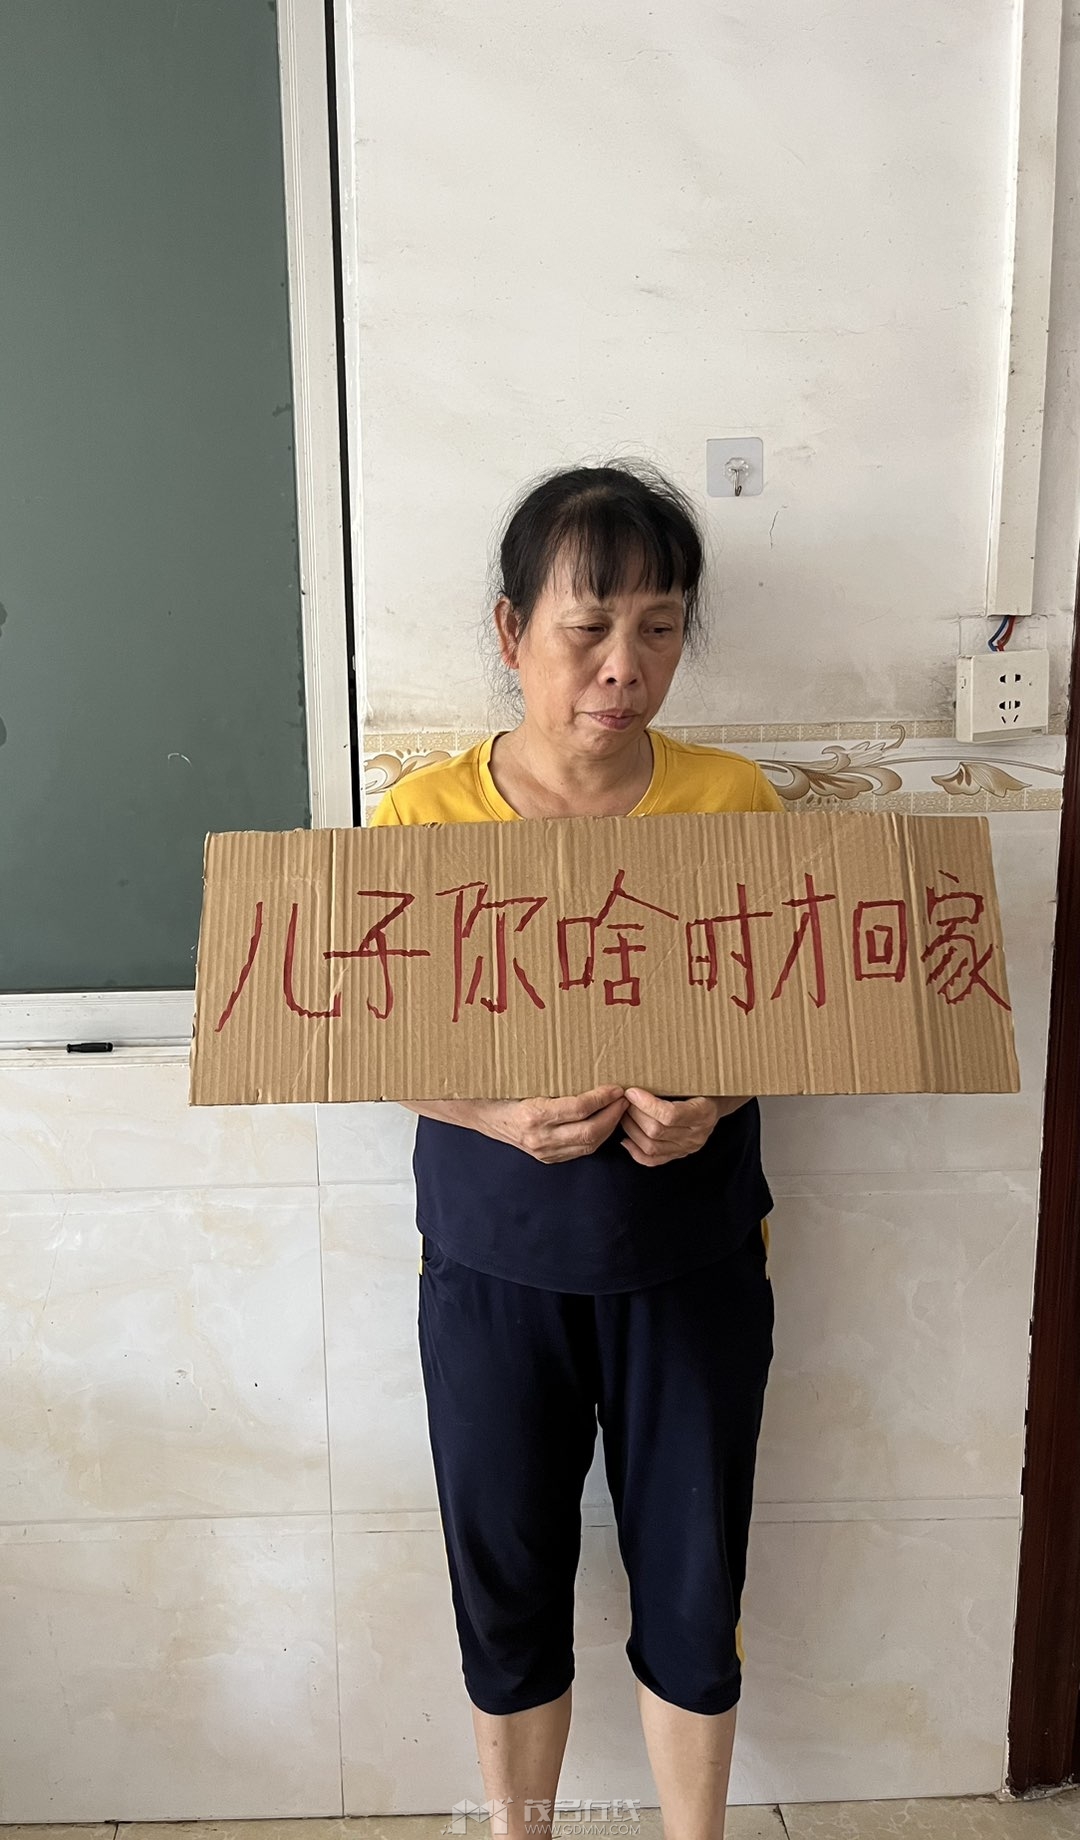 儿子你啥时才回家
茂名在线
WWW.GDMM.COM